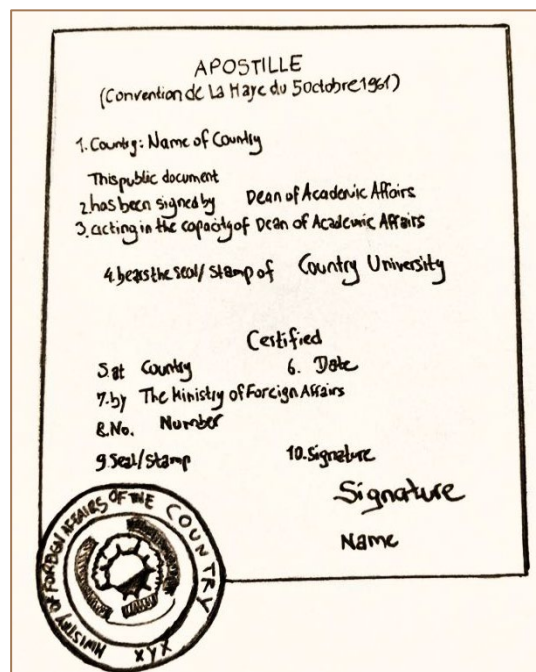 APOSTILLE
(Convention de La Haye du 5 octobre 1961)
1. Country: Name of Country
This public document
2. has been signed by Dean of Academic Affairs
3. acting in the capacity of Dean of Academic Affairs
4. bears the seal/stamp of Country University
Certified
5. at Country 6. Date
7. by The Ministry of Foreign Affairs
8. No. Number
9. Seal/Stamp 10. Signature
Signature
Name
MINISTRY OF FOREIGN AFFAIRS OF THE COUNTRY
XYX